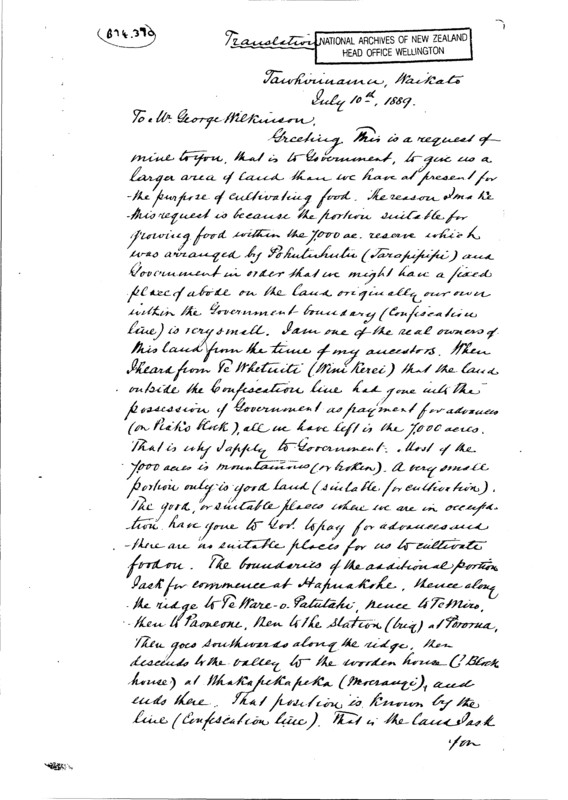 B74.390
7
Translation
NATIONAL ARCHIVES OF NEW ZEALAND
HEAD OFFICE WELLINGTON
Tawhirinamu, Waikato
July 10th, 1889.
To Mr. George Wilkinson.
Greeting This is a request of
mine to you, that is to Government, to give us a
larger area of land than we have at present for
the purpose of cultivating food. The reason I make
this request is because the portion suitable for
growing food within the 7,000 ac. reserve which
was arranged by Pohutuhutu (Tarapipipi) and
Government in order that we might have a fixed
place of abode on the land originally our own
within the Government boundary (Confiscation
line) is very small. I am one of the real owners of
this land from the time of my ancestors. When
I heard from Te Whetuiti (Wini Kerei) that the land
outside the Confiscation line had gone into the
possession of Government as payment for advances
(on Piako block), all we have left is the 7000 acres.
That is why I apply to Government. Most of the
7000 acres is mountainous (or broken). A very small
portion only is good land (suitable for cultivation).
The good, or suitable places where we are in occupa-
tion have gone to Gov. to pay for advances and
there are no suitable places for us to cultivate
food on. The boundaries of the additional portion
I ask for commence at Hapuakohe, thence along
the ridge to Te Ware-o-Patutahi, hence to Te Miro,
then to Paneone, then to the Station (trig) at Pororua,
Then goes southwards along the ridge, then
descends to the valley to the wooden house (? Block
house) at Whakapekapeka (Moerangi), and
ends there. That position is known by the
line (Confiscation line). That is the land I ask
for